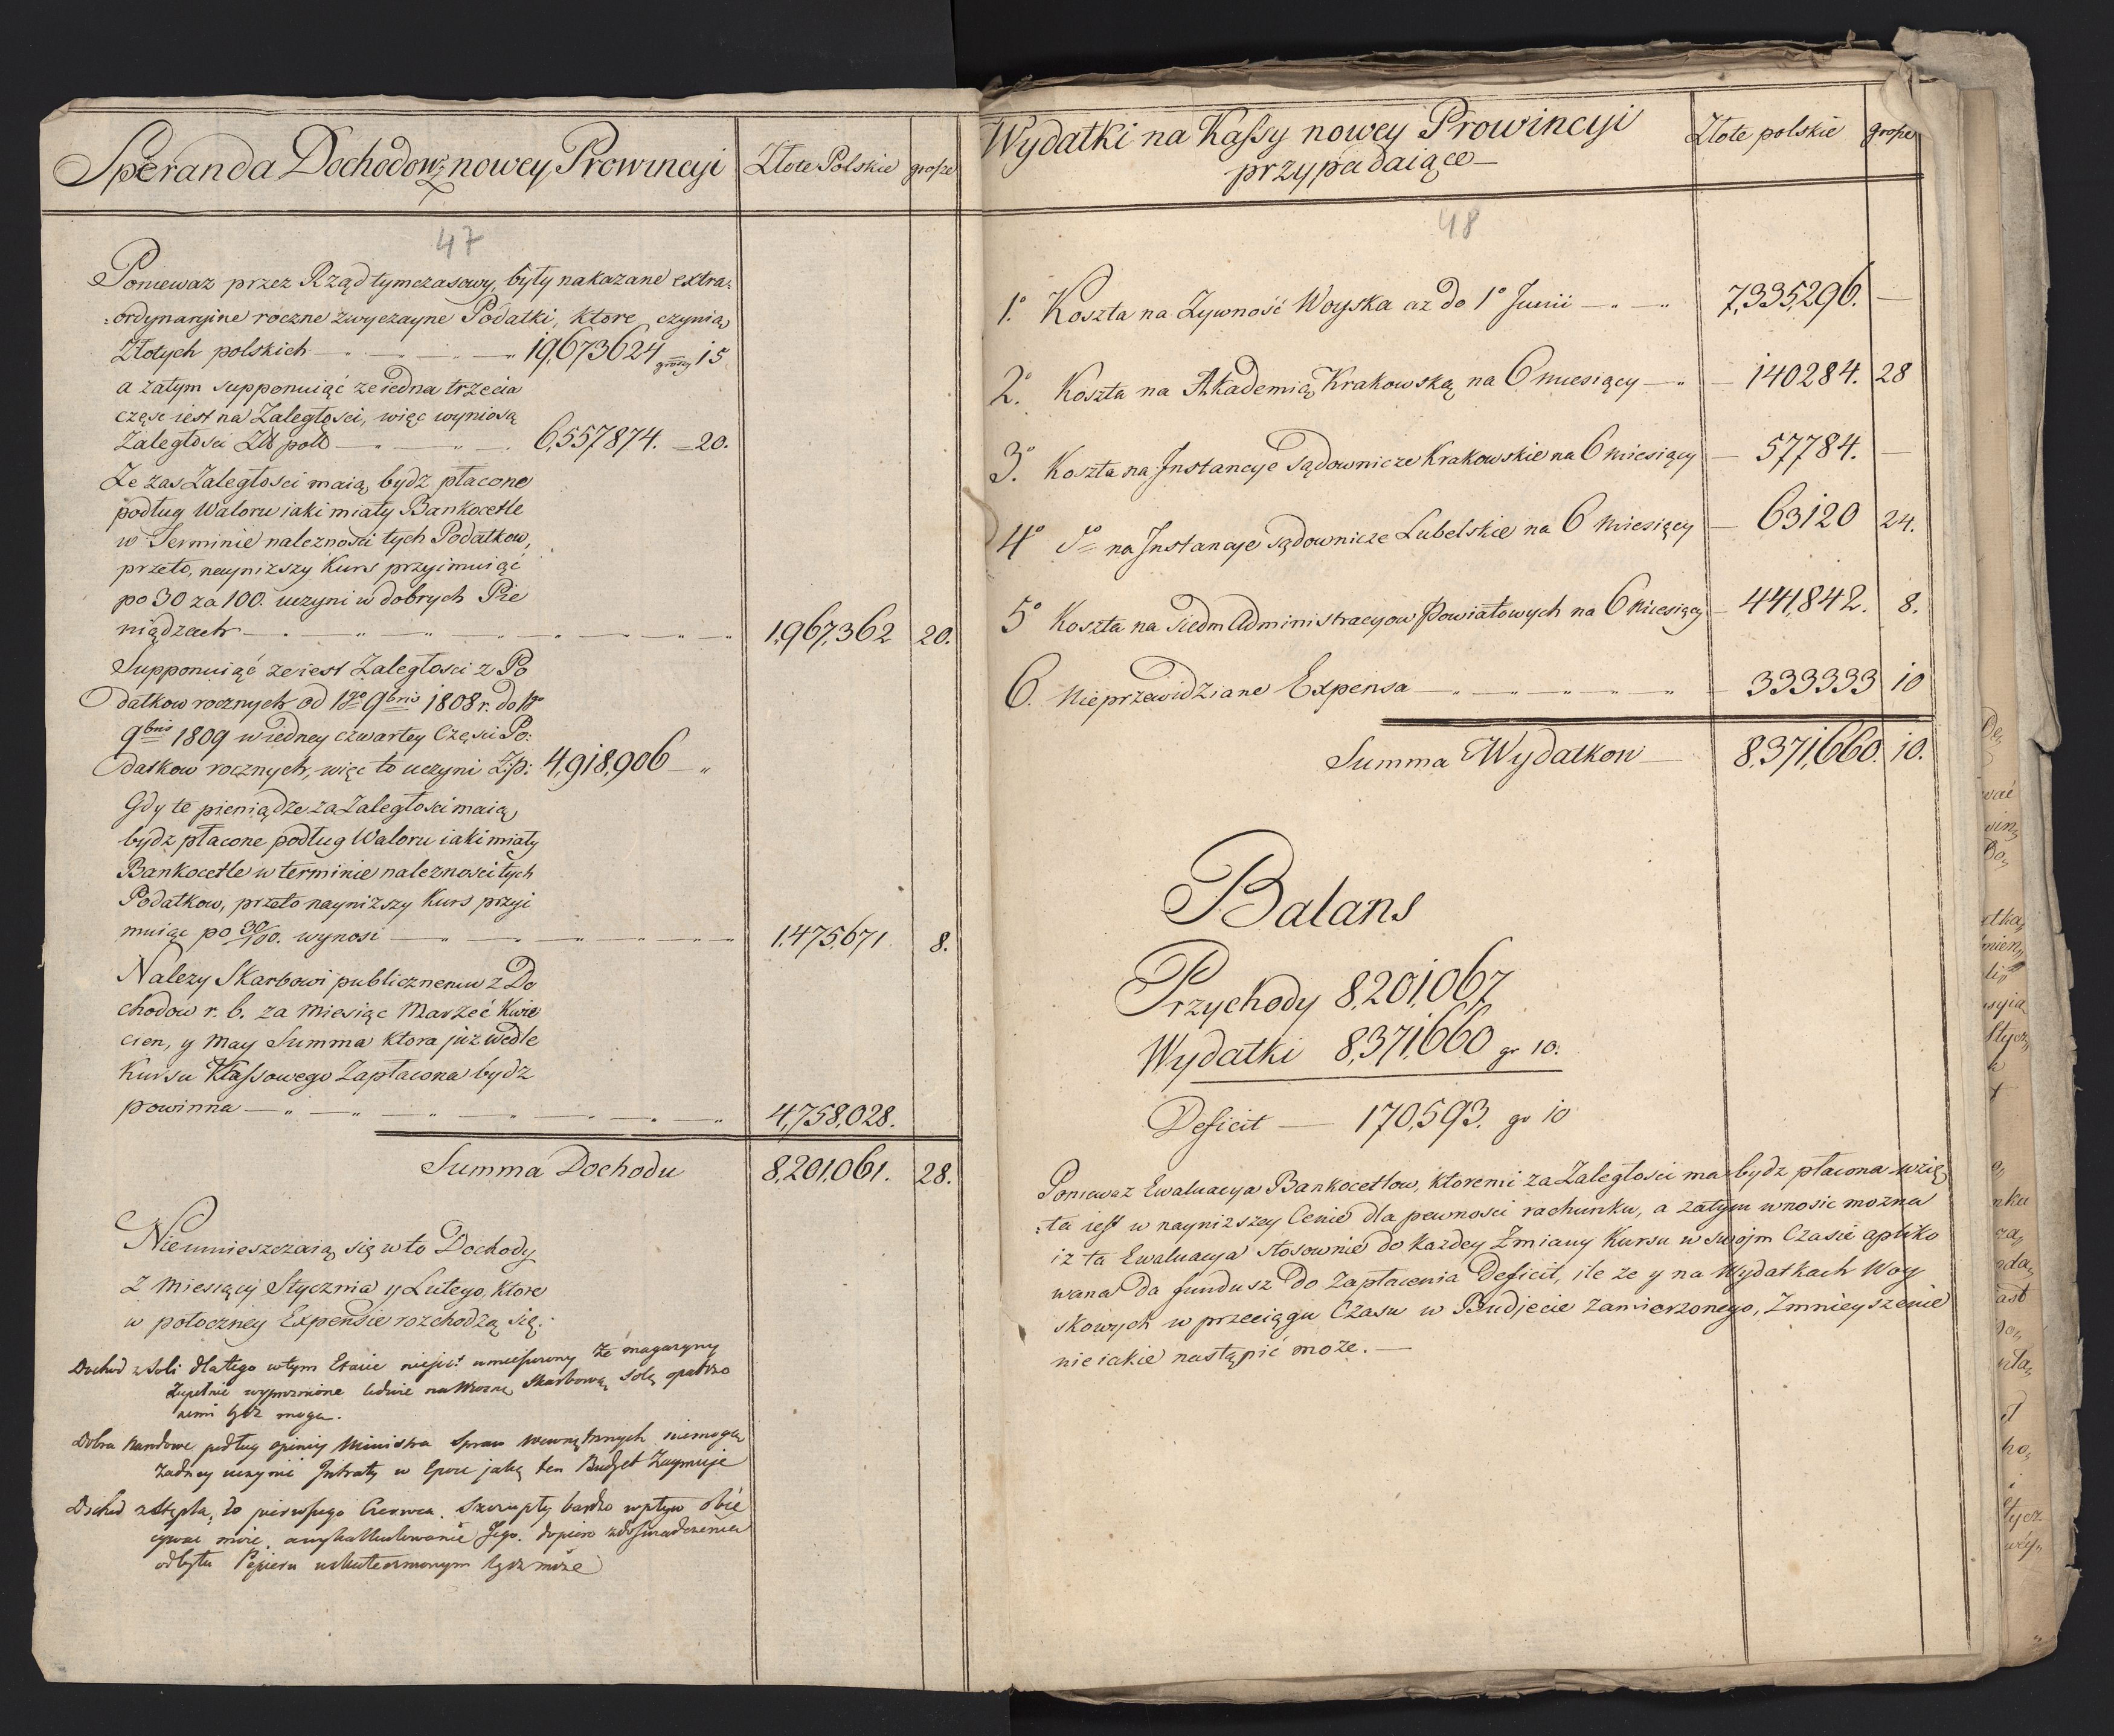 Speranda Dochodow z nowey Prowincyi
Złote Polskie
grosze
47
Poniewaz przez Rząd tymczasowy, były nakazane extra-
:ordynaryine roczne zwyczayne Podatki, ktore czynią
Złotych polskich — " — " — " 19,673624 groszy 15
a zatym supponuiąć ze iedna trzecia
częsc iest na Zaległosci, więc wyniosą
Zaległosci Złł pol — " — " 6,557874. — 20.
Ze zas Zaległosci maią bydz płacone
podług Waloru iaki miały Bankocetle
w Terminie naleznosci tych Podatkow,
przeto, nayniższy Kurs przyimuiąć
po 30 za 100. uczyni w dobrych Pie
niądzach — " — " — " — " 1,967,362 20.
Supponuiąć ze iest Zaległosci z Po
datkow rocznych od 1go 9bris 1808 r. do 1go
9bris 1809 w iedney czwartey Części Po:
datkow rocznych, więc to uczyni Złp: 4,918,906 — "
Gdy te pieniądze za Zaległosci maią
bydz płacone podług Waloru iaki miały
Bankocetle w terminie naleznosci tych
Podatkow, przeto nayniższy Kurs przyi
muiąc po 30/100. wynosi — " — " — " 1,475,671 8.
Nalezy Skarbowi publicznemu z Do
chodow r. b. za Miesiąc Marzeć Kwie
cien, y May Summa ktora już wedle
Kursu Kassowego Zapłacona bydz
powinna — " — " — " — " 4,758,028.
Summa Dochodu 8,201,061. 28.
Nieumieszczaią się w to Dochody
z Miesiący Stycznia y Lutego, ktore
w potoczney Expensie rozchodzą się.
Dochod z Soli dlatego w tym Etacie niejest umieszczony że magazyny
zupełnie wyproznione ledwie na Wiosnę Skarbową Solą opatrzo
nemi bydz mogą.
Dobra Narodowe podług opinii Ministra Spraw Wewnętrznych niemogą
żadney uczynić Intraty w Epoce jaką ten Budżet Zaymuje
Dochod z Stępla, do pierwszego Czerwca. Szczupły bardzo wpływ obie
cywac może, a wykalkulowanie Jego. dopiero z doswiadczenia
odbytu Papieru uskutecznionym bydz może
Wydatki na Kassy nowey Prowincyi
przypadaiące —
Złote polskie
grosze
48
1.° Koszta na Zywność Woyska az do 1° Junii — " — " 7,335,296. —
2.° Koszta na Akademią Krakowską na 6 miesięcy — " — 140284. 28
3.° Koszta na Instancye Sądownicze Krakowskie na 6 Miesięcy — 57,784. —
4° do na Instancye Sądownicze Lubelskie na 6 Miesięcy — 63120 24.
5° Koszta na Siedm Administracyow Powiatowych na 6 Miesięcy — 441,842. 8.
6. Nieprzewidziane Expensa — " — " — " — " — 333333 10
Summa Wydatkow — 8,371,660. 10.
Balans
Przychody 8,201,067
Wydatki 8,371,660 gr 10.
Deficit — 170,593. gr 10
Poniewaz Ewaluacya Bankocetlow, ktoremi za Zaległosci ma bydz płacona wzię
:ta iest w nayniższey Cenie dla pewnosci rachunku, a zatym wnosic mozna
iż ta Ewaluacya stosownie do każdey Zmiany Kursu w swojm Czasie apliko
wana da fundusz do Zapłacenia Deficit, ile ze y na Wydatkach Woy
skowych w przeciągu Czasu w Budjecie zamierzonego, Zmnieyszenie
nieiakie nastąpić może. —